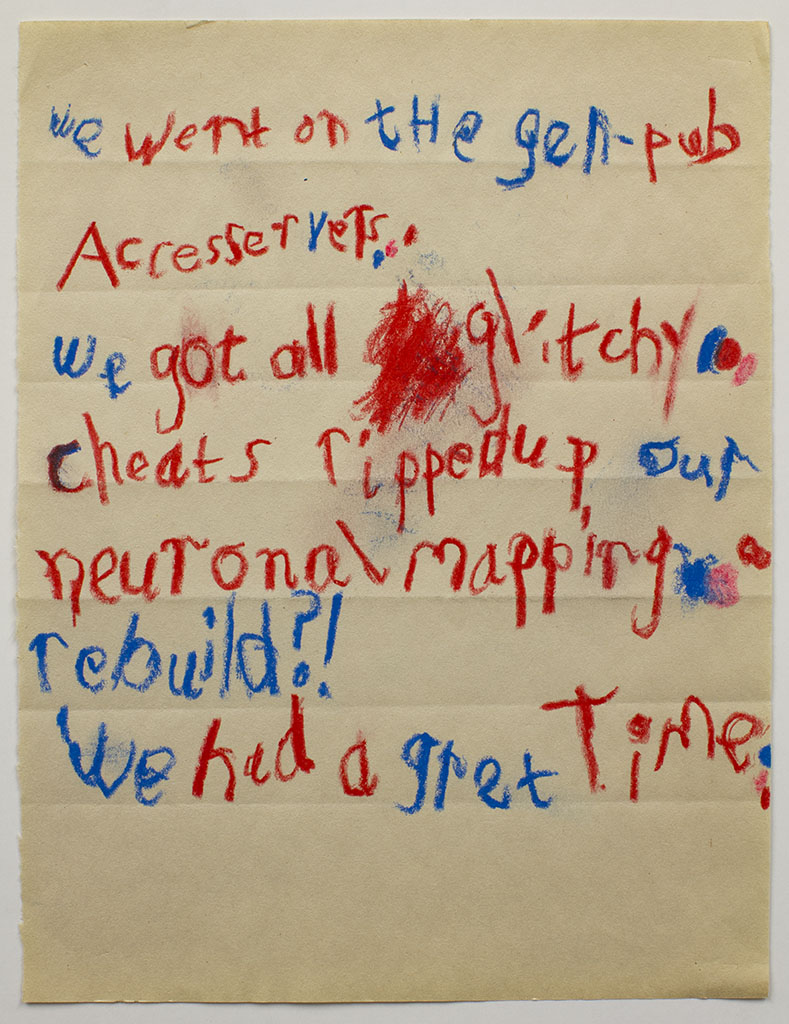 we went on tHe gen-pub
Accesservers...
we got all glitchy...
cheats rippedup our
neuronal mapping...
rebuild?!
We had a gret TiMe...